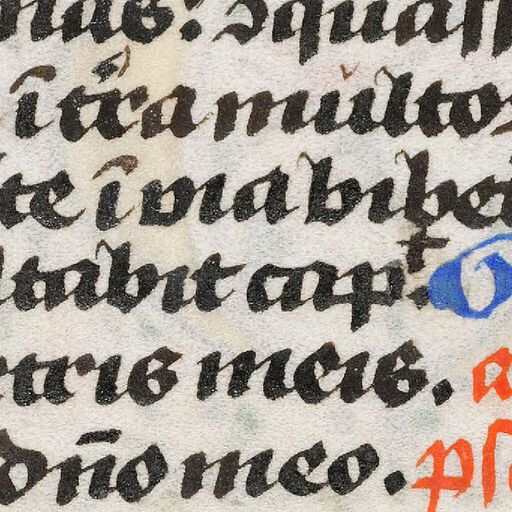 nas: ꝯquass
ī tr̄a multos
te ī via bibet
ltabit cap.
etris meis. a
dn̄o meo. ps